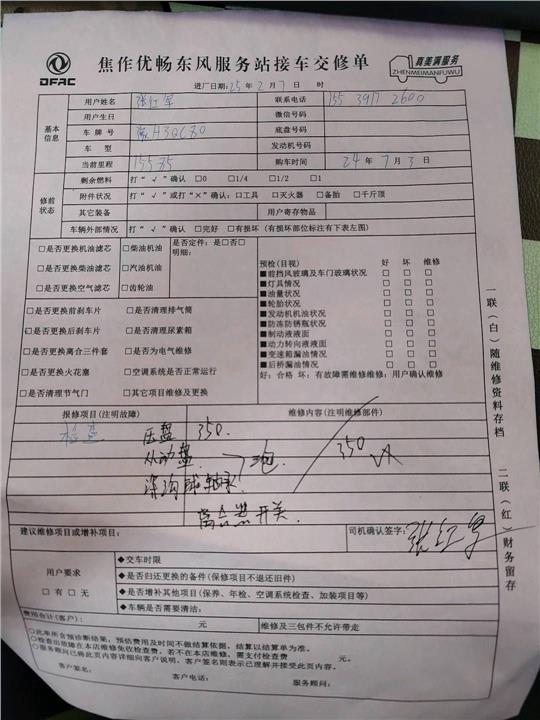 DFAC
焦作优畅东风服务站接车交修单
真美满服务
ZHENMEIMANFUWU
进厂日期:25年2月7日 时
基本信息
用户姓名 联系电话 155 3917 2600
用户生日 微信号码
车牌号 底盘号码
车型 发动机号码
当前里程 15585 购车时间 24年7月3日
修前状态
剩余燃料 打“√”确认 □0 □1/4 □1/2 □1
附件状况 打“√”或打“×”确认:□工具 □灭火器 □备胎 □千斤顶
其它装备 用户寄存物品
车辆外部情况 打“√”确认 □完好 □有损坏 (有损坏部位标注有下表左图)
□是否更换机油滤芯 □柴油机油 是否定件:是□否□
明细:
□是否更换柴油滤芯 □汽油机油
□是否更换空气滤芯 □齿轮油
□是否更换前刹车片 □是否清理排气筒
□是否更换后刹车片 □是否清理尿素箱
□是否更换离合三件套 □是否为电气维修
□是否更换火花塞 □空调系统是否正常运行
□是否清理节气门 □其它项目维修及更换
预检(目视) 好 坏 维修
■前挡风玻璃及车门玻璃状况 □ □ □
■灯具情况 □ □ □
■油量状况 □ □ □
■轮胎状况 □ □ □
■发动机机油状况 □ □ □
■防冻防锈瓶状况 □ □ □
■制动液液面 □ □ □
■动力转向液液面 □ □ □
■变速箱漏油情况 □ □ □
■后桥漏油情况 □ □ □
好:合格 坏:有故障需维修维修:用户确认维修
报修项目(注明故障) 维修内容(注明维修部件)
检查 压盘 350.
从动盘 三包 350
深沟球轴承
离合器开关.
建议维修项目或增补项目: 司机确认签字:张红军
用户要求
□有 □无
◆交车时限
◆是否归还更换的备件(保修项目不退还旧件)
◆是否增补其他项目(保养、年检、空调系统检查、加装项目等)
◆车辆是否需要清洁:
费用合计(客户): 元 维修及三包件不允许带走
○此单所含预诊断结果,预估费用及时间不做结算依据,结算以结算单为准。
○检查出故障在本店维修免收检查费,若不在本店维修,需支付检查费 元。
○服务顾问已将此页内容详细向客户说明,客户签名则表示已理解并接受此页内容。
客户签名: 客户电话: 服务顾问:
一联(白)随维修资料存档
二联(红)财务留存